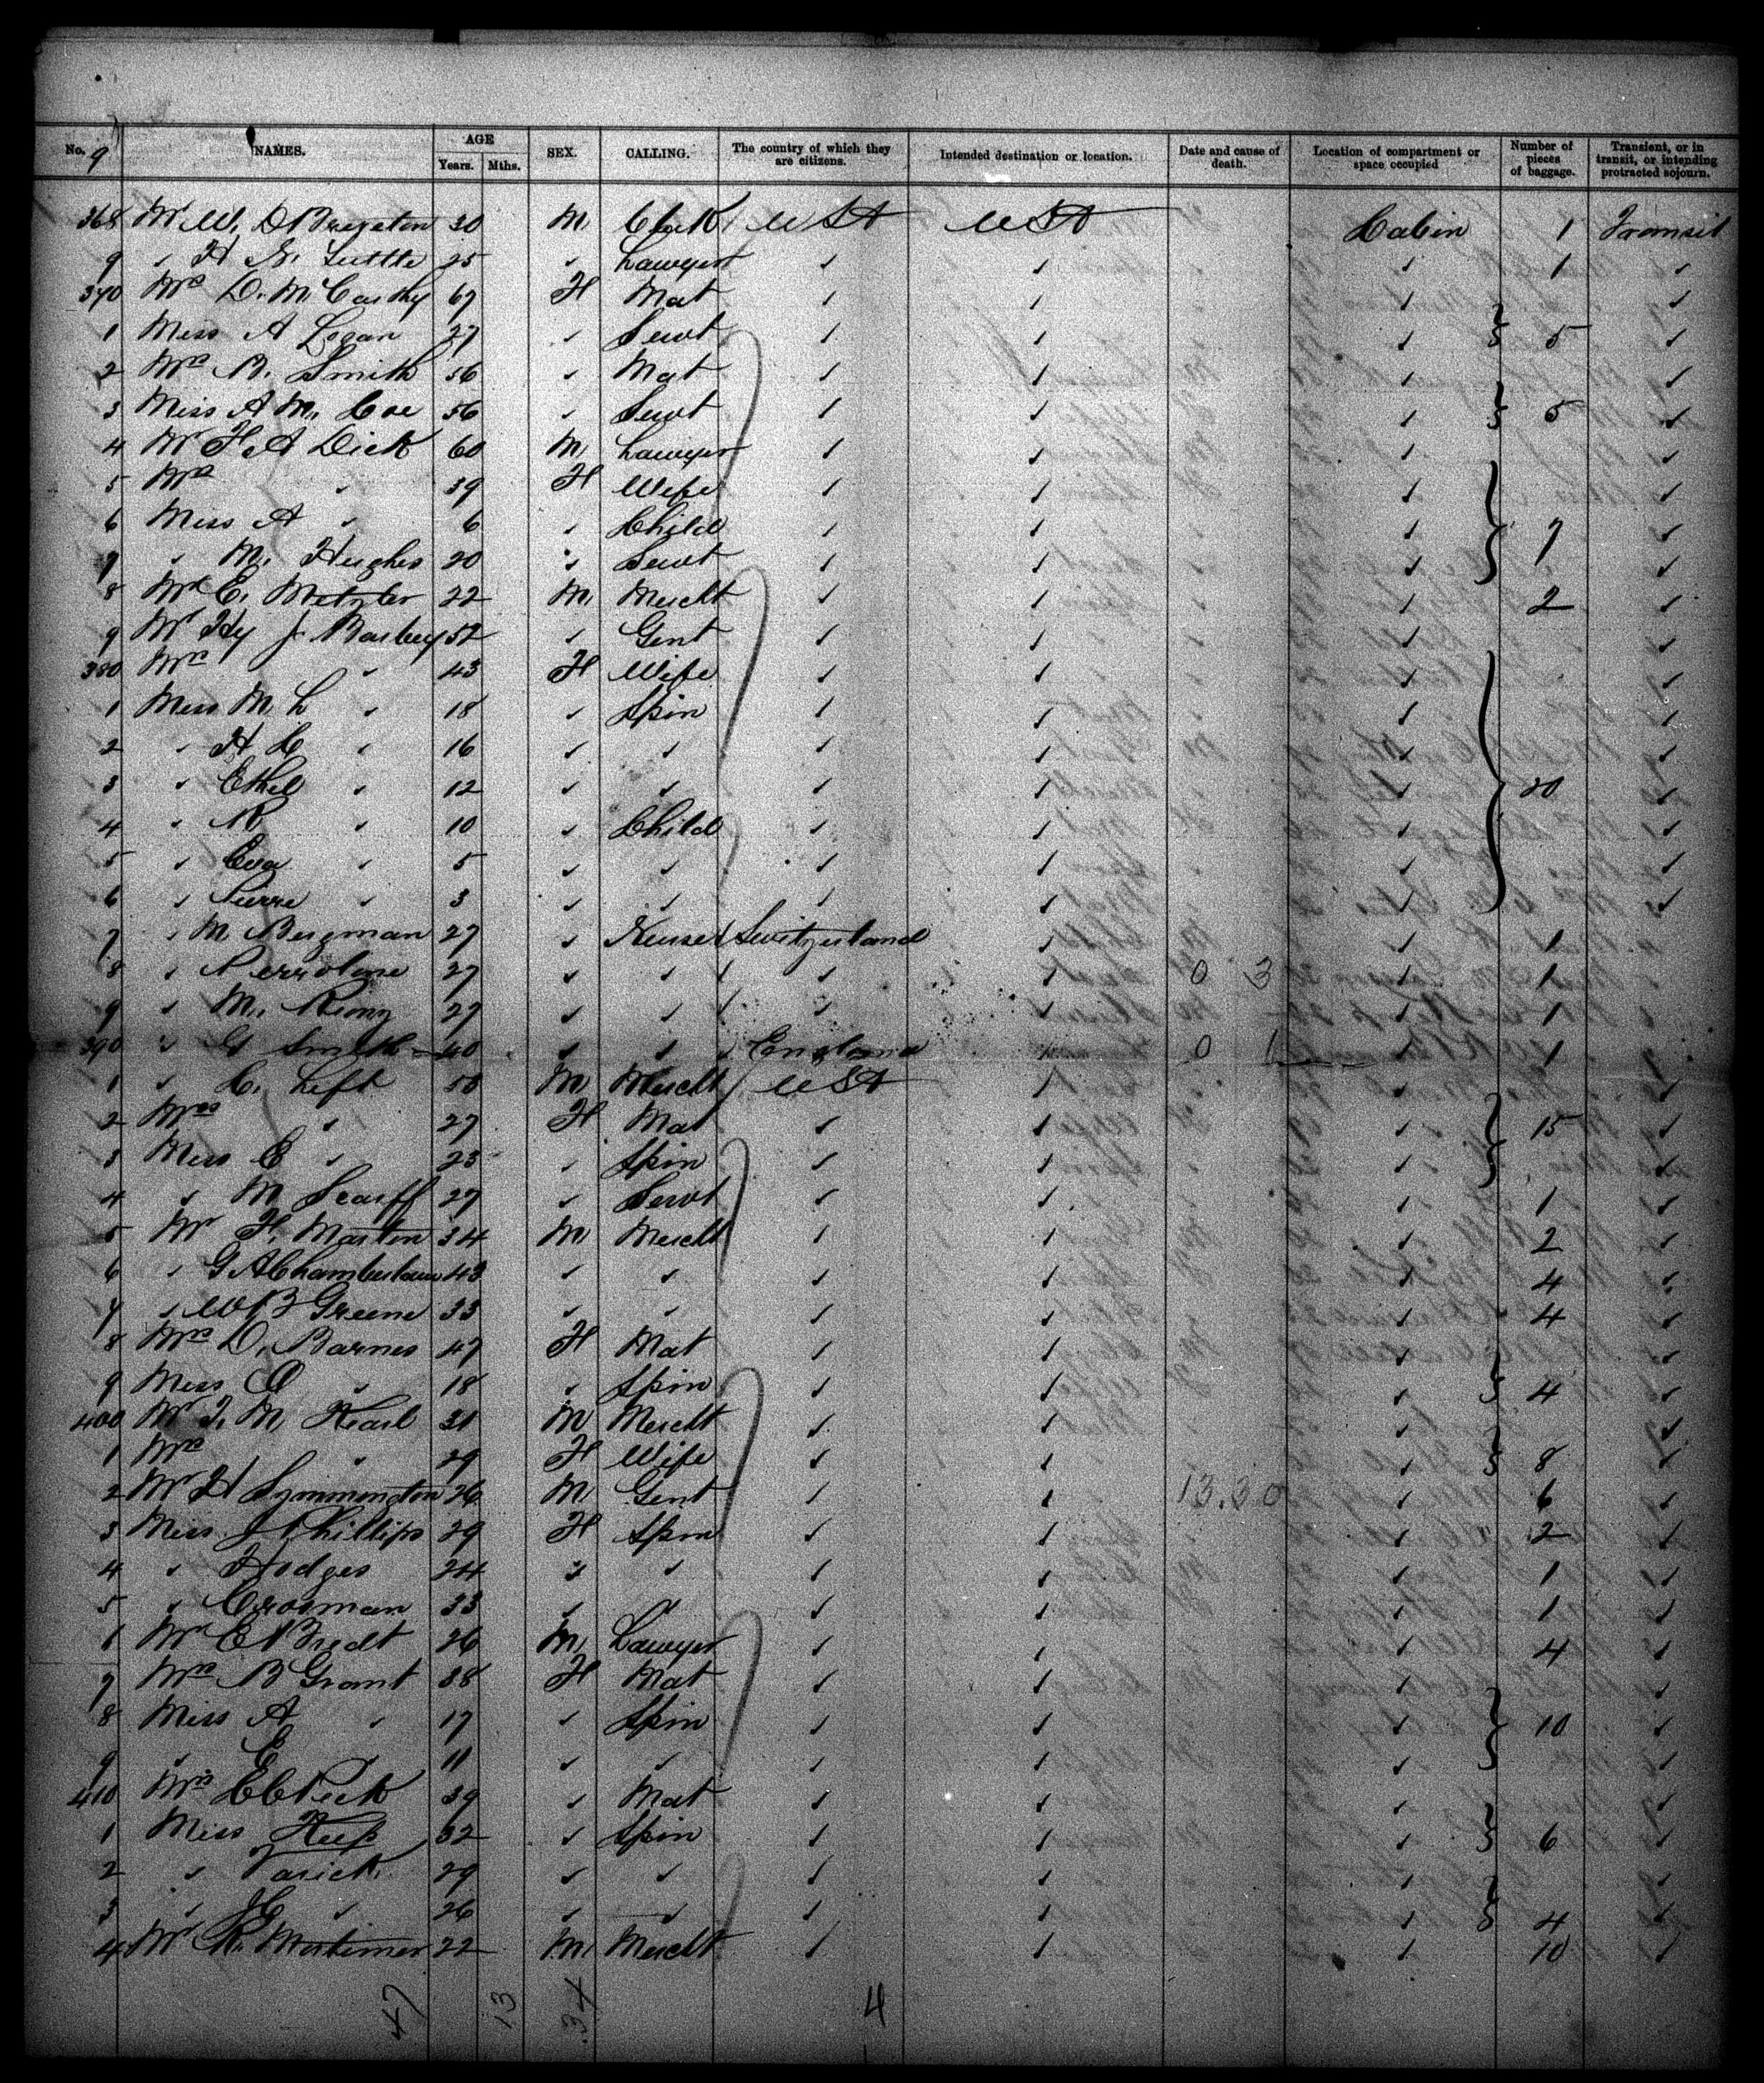 No. 9 NAMES. AGE Years. Mths. SEX. CALLING. The country of which they are citizens. Intended destination or location. Date and cause of death. Location of compartment or space occupied Number of pieces of baggage. Transient, or in transit, or intending protracted sojourn.
368 Mr W. D 30 M Clerk USA USA Cabin 1 Transit
9 " H Tuttle 25 " Lawyer " " " 1 "
370 Mrs D. McCarthy 67 F Mat " " " "
1 Miss A Logan 27 " Servt " " " 5 "
2 Mrs B. Smith 56 " Mat " " " "
3 Miss A M. Coe 56 " Servt " " " 5 "
4 Mr F. A Dick 60 M Lawyer " " " "
5 Mrs " 39 F Wife " " " "
6 Miss A " 6 " Child " " " 7 "
7 " M. Hughes 20 " Servt " " " "
8 Mr E. Metzler 22 M Mercht " " " 2 "
9 Mr Hy J. Barbey 52 " Gent " " " "
380 Mrs " 43 F Wife " " " "
1 Miss M. L " 18 " Spin " " " "
2 " H. C " 16 " " " " " "
3 " Ethel " 12 " " " " " 20 "
4 " R " 10 " Child " " " "
5 " Eva " 5 " " " " " "
6 " Pierre " 3 " " " " " "
7 " M. Bergman 27 " Nurse Switzerland " " 1 "
8 " 27 " " " " 0 3 " 1 "
9 " M. 27 " " " " " 1 "
390 " G Smith 40 " " England " 0 1 " 1 "
1 " C. Left 58 M Mercht USA " " "
2 Mrs " 27 F Mat " " " 15 "
3 Miss E " 23 " Spin " " " "
4 " M Scarff 27 " Servt " " " 1 "
5 Mr F. Marston 34 M Mercht " " " 2 "
6 " G A Chamberlain 43 " " " " " 4 "
7 " W B Greene 33 " " " " " 4 "
8 Mrs D. Barnes 47 F Mat " " " "
9 Miss O " 18 " Spin " " " 4 "
400 Mr T. M. 31 M Mercht " " " "
1 Mrs " 29 F Wife " " " 8 "
2 Mr H Symmington 26 M Gent " " 13.30 " 6 "
3 Miss J Phillips 29 F Spin " " " 2 "
4 " Hodges 24 " " " " " 1 "
5 " Crosman 33 " " " " " 1 "
6 Mr E 26 M Lawyer " " " 4 "
7 Mrs B Grant 38 F Mat " " " "
8 Miss A " 17 " Spin " " " 10 "
9 " E " 11 " " " " " "
410 Mrs E C Peck 39 " Mat " " " "
1 Miss Keep 32 " Spin " " " 6 "
2 " Varick 29 " " " " " "
3 " J E " 26 " " " " " 4 "
4 Mr R. Mortimer 22 M Mercht " " " 10 "
47 13 34 4